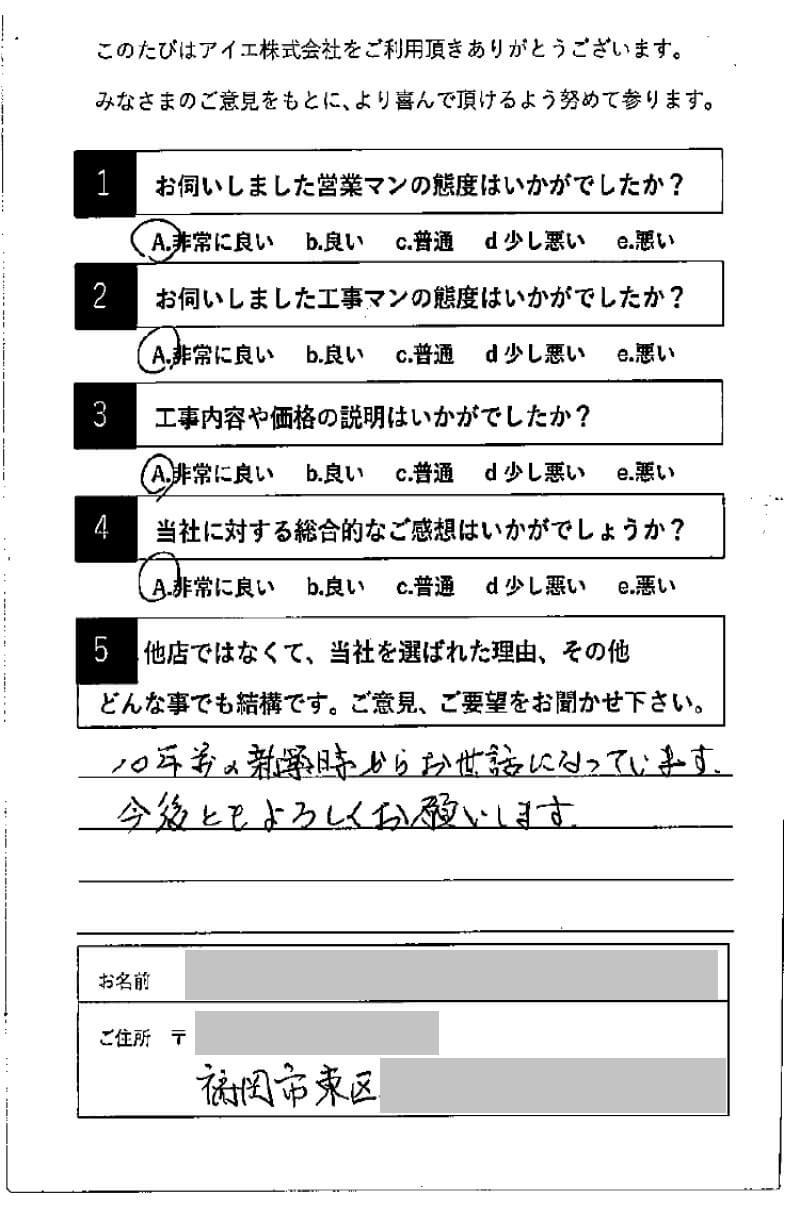 このたびはアイエ株式会社をご利用頂きありがとうございます。
みなさまのご意見をもとに、より喜んで頂けるよう努めて参ります。
1 お伺いしました営業マンの態度はいかがでしたか？
A.非常に良い b.良い c.普通 d 少し悪い e.悪い
2 お伺いしました工事マンの態度はいかがでしたか？
A.非常に良い b.良い c.普通 d 少し悪い e.悪い
3 工事内容や価格の説明はいかがでしたか？
A.非常に良い b.良い c.普通 d 少し悪い e.悪い
4 当社に対する総合的なご感想はいかがでしょうか？
A.非常に良い b.良い c.普通 d 少し悪い e.悪い
5 他店ではなくて、当社を選ばれた理由、その他
どんな事でも結構です。ご意見、ご要望をお聞かせ下さい。
10年前の新築時からお世話になっています.
今後ともよろしくお願いします.
お名前
ご住所 〒
福岡市東区